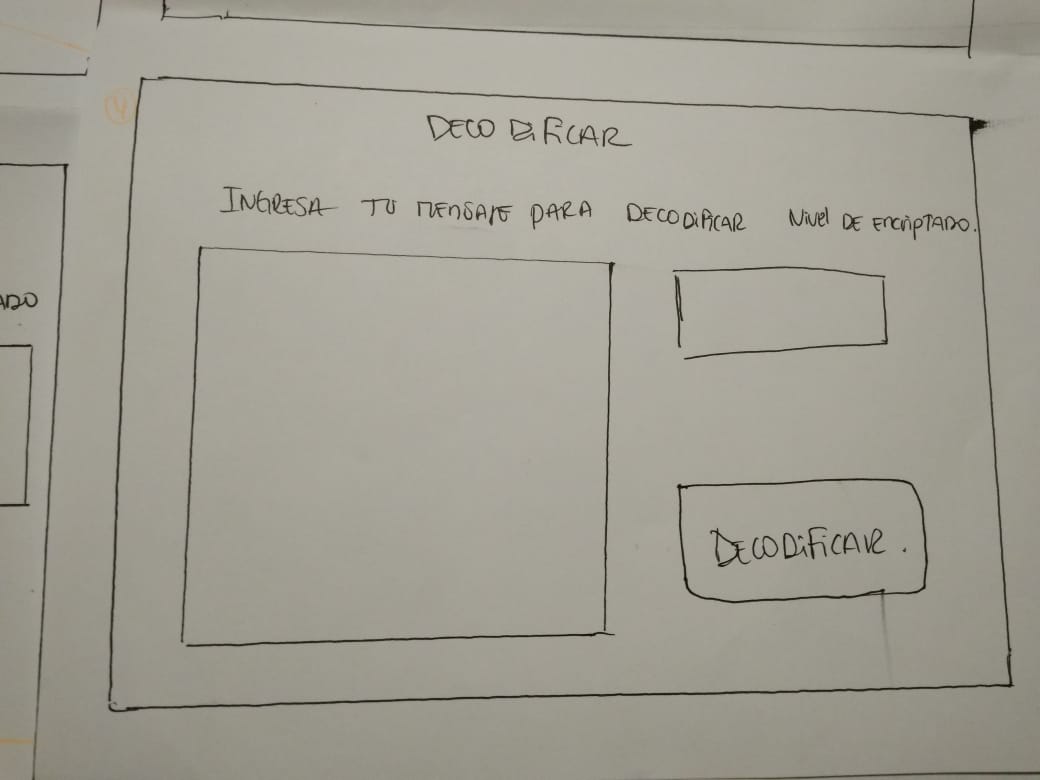 4
DECODIFICAR
INGRESA TU MENSAJE PARA DECODIFICAR NIVEL DE ENCRIPTADO.
DECODIFICAR.
ADO